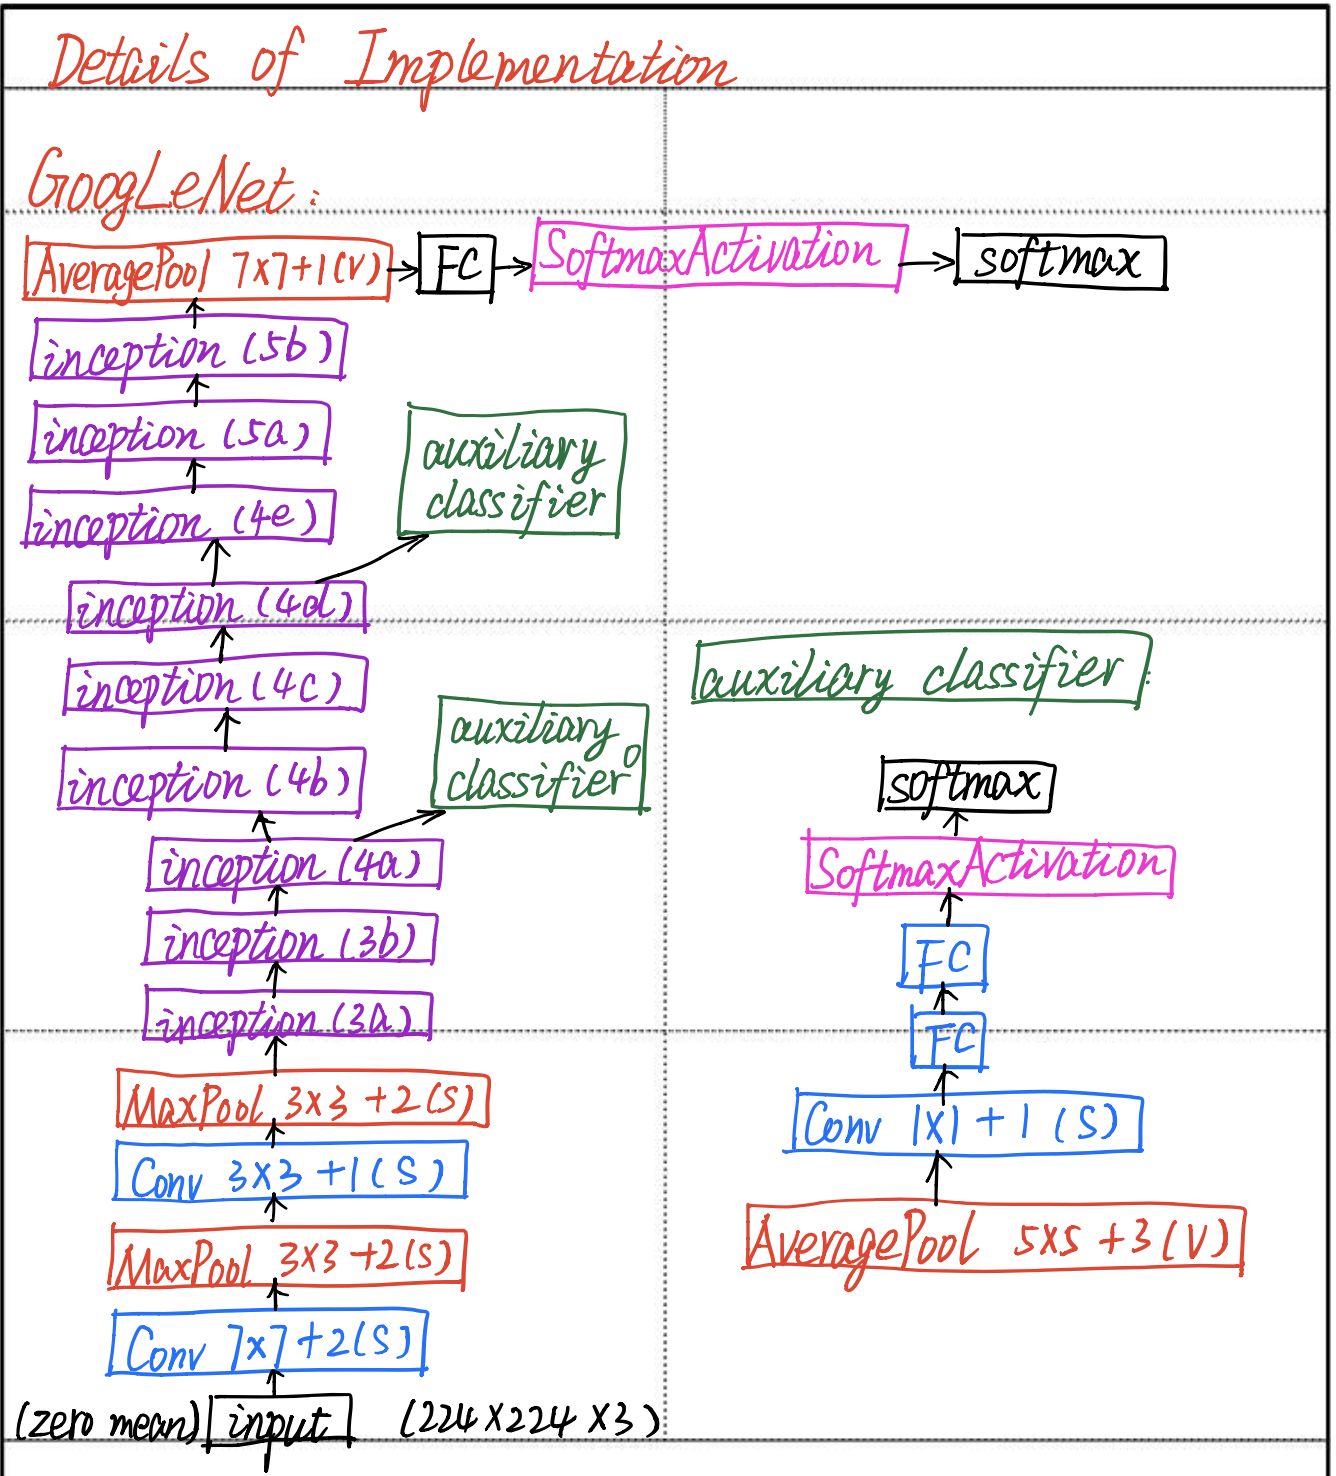 Details of Implementation
GoogLeNet:
AveragePool 7x7+1(V)
FC
SoftmaxActivation
softmax
inception (5b)
inception (5a)
auxiliary
classifier
inception (4e)
inception (4d)
inception (4c)
auxiliary
classifier
inception (4b)
inception (4a)
inception (3b)
inception (3a)
MaxPool 3x3 +2(S)
Conv 3x3 +1(S)
MaxPool 3x3+2(S)
Conv 7x7+2(S)
(zero mean) input (224x224x3)
auxiliary classifier:
softmax
SoftmaxActivation
FC
FC
Conv 1x1 + 1 (S)
AveragePool 5x5 +3(V)